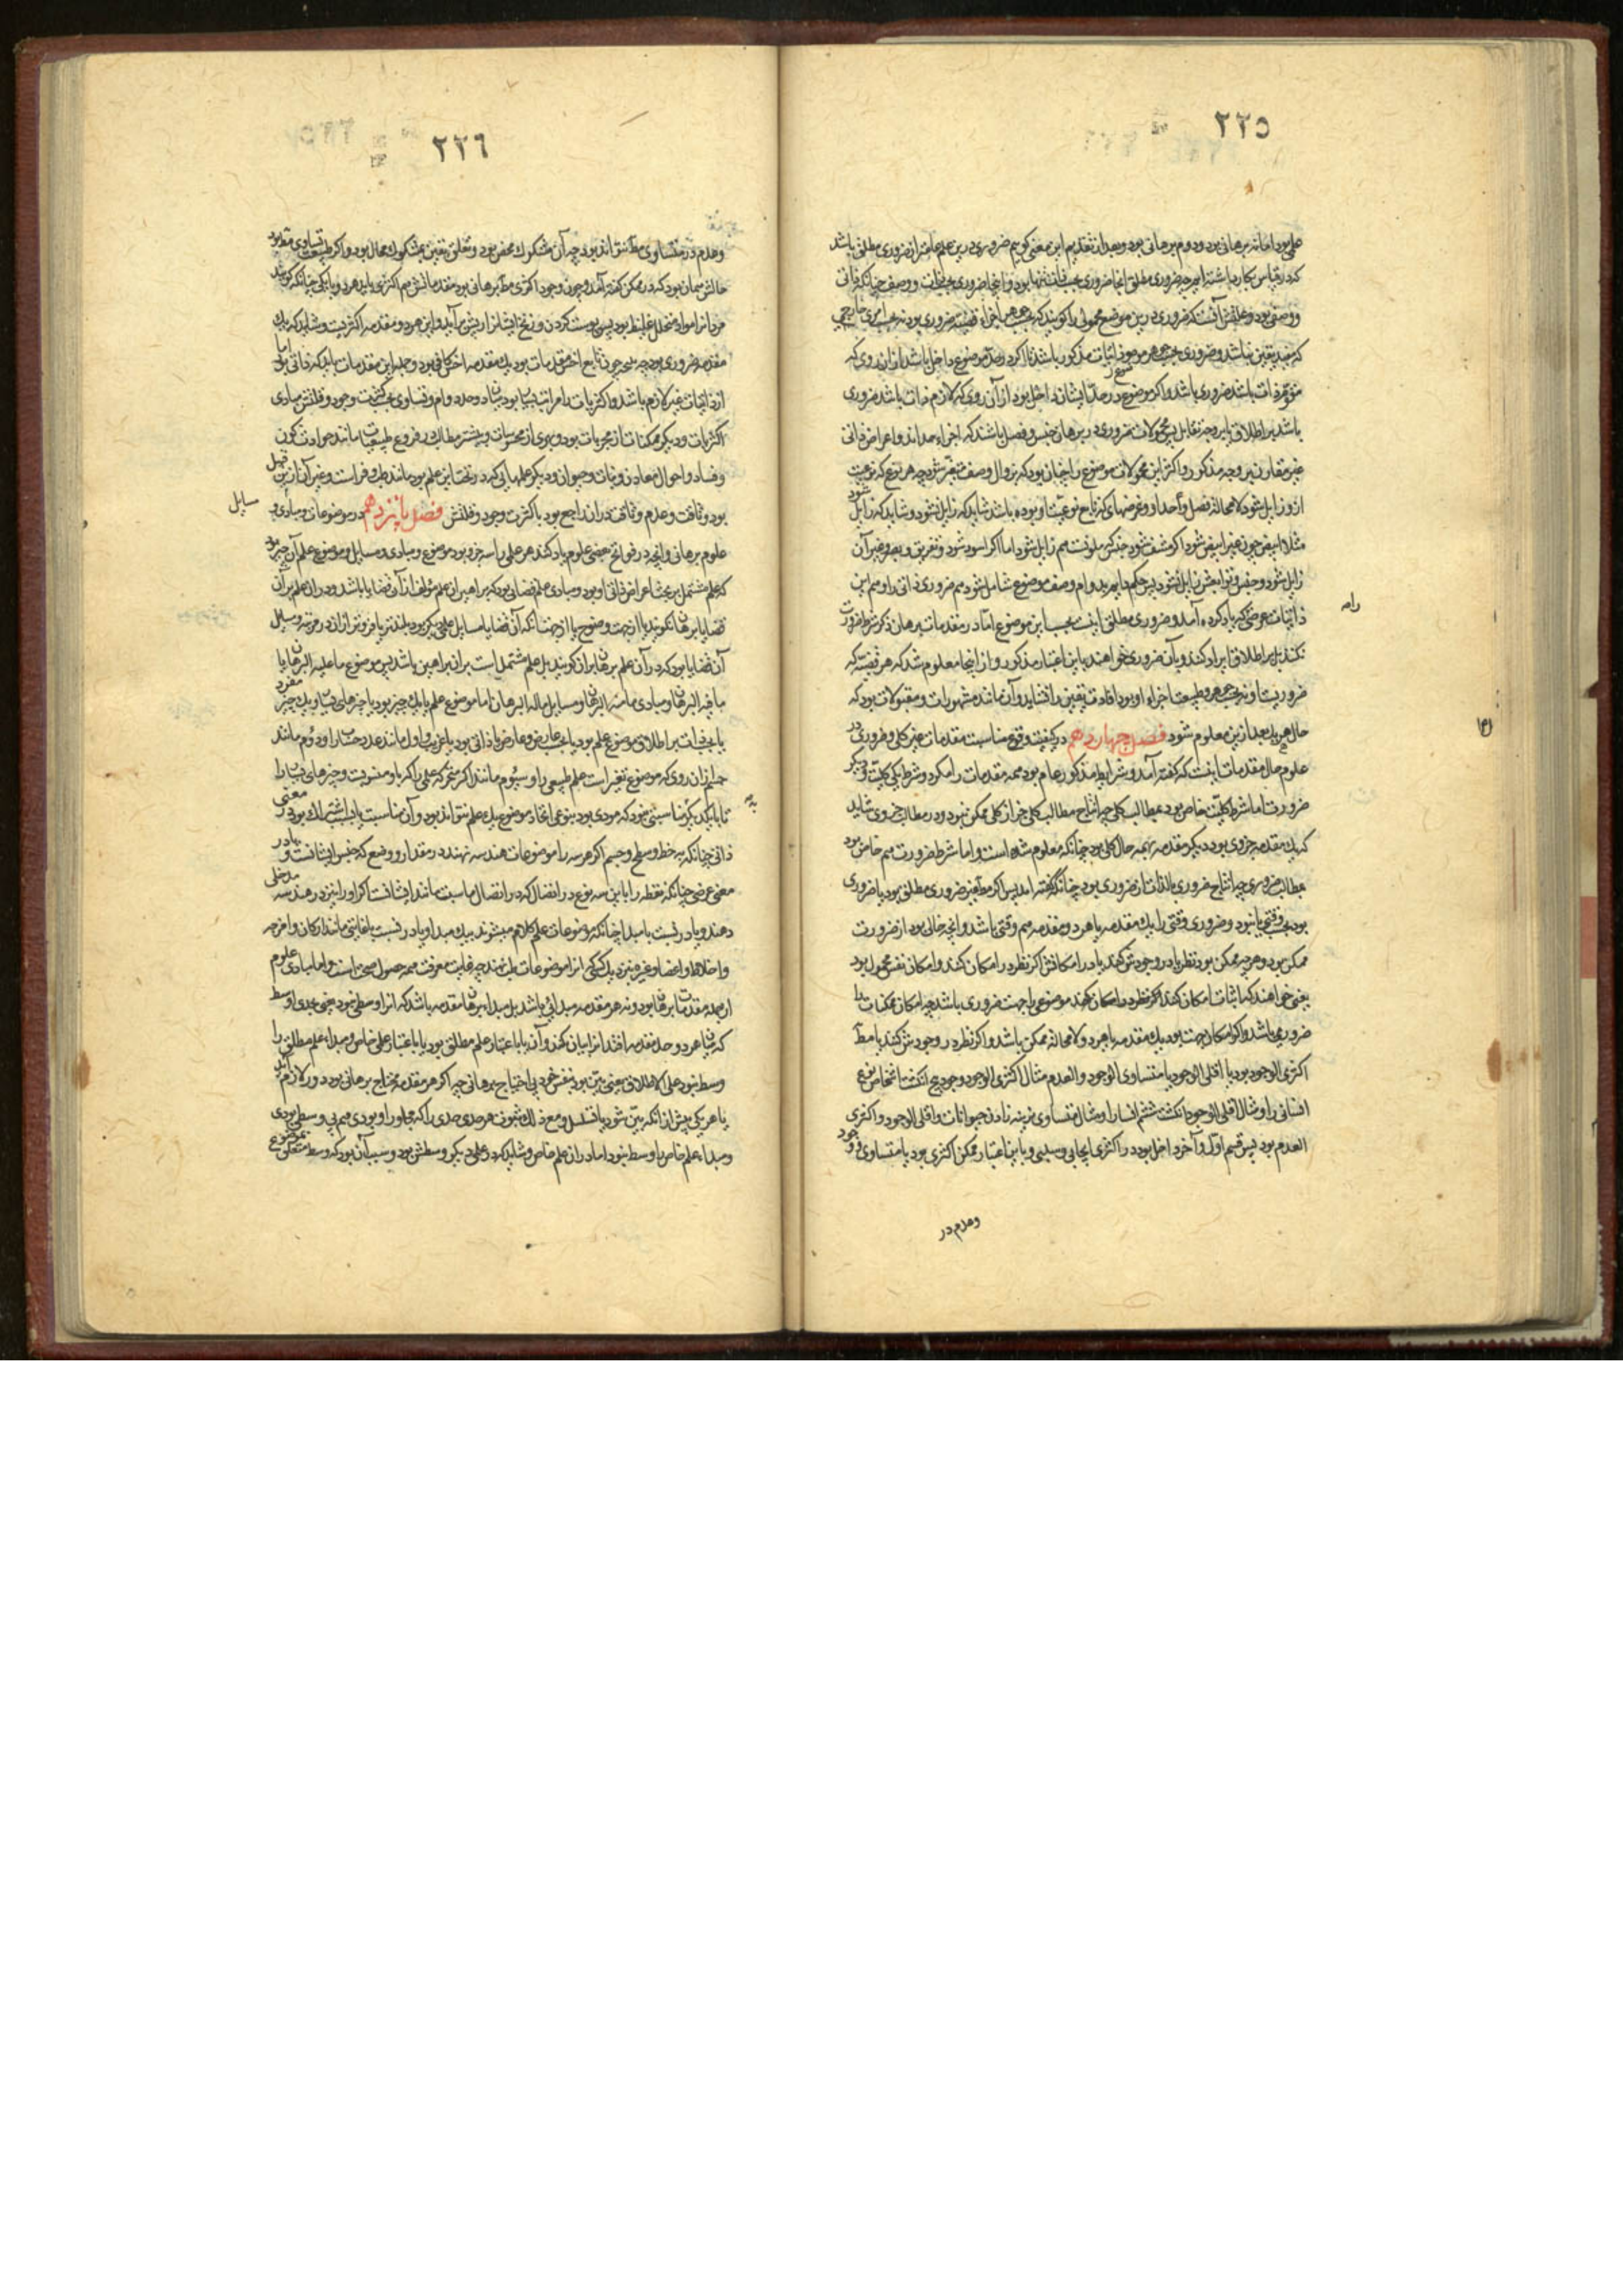 ٢٢٥
علمی بود اما نه برهانی بود و دوم برهانی بود و بعد از تقدیم این معنی گوییم ضروری درین علم عامتر از ضروری مطلق باشد
که در قیاس بکار داشته‌ایم چه ضروری مطلق آنجا ضروری بحسب ذات تنها بود و اینجا ضروری بحسب ذات و وصف چنانکه ذاتی
و وصفی بود و علتش آنست که ضروری درین موضع محمولی را گویند که بحسب جوهر اجزاء قضیه ضروری بود نه بحسب امری خارجی
که مفید یقین نباشد و ضروری بحسب جوهر موضوع اثبات مذکور باشد تا اگر در حد موضوع داخل باشد از آن روی که
مقوم ذات باشد ضروری باشد و اگر موضوع در حد ایشان داخل بود از آن روی که لازم ذات باشد ضروری
باشد بر اطلاق یا بر وجه تقابل پس محمولات ضروری در برهان جنس و فصل باشند که اجزاء حدند و اعراض ذاتی
غیر مفارق بر وجه مذکور و اکثر این محمولات موضوع را چنان بود که بزوال وصف متغیر شود چه هر نوع که نوعیت
ازو زایل شود لامحاله فصل و احد او و عرضهای که تابع نوعیت او بوده باشند شاید که زایل نشود و شاید که زایل شود
مثلا ابیض چون غیر ابیض شود اگر مشف شود جنس که ملونست هم زایل شود اما اگر اسود شود و تفریق بصر و غیر آن
زایل شود و جنس و توابعش زایل نشود پس حکم دایم بدوام وصف موضوع شامل شود هم ضروری ذاتی را و هم این
ذاتیات عرضی که یاد کرده آمد و ضروری مطلق اینست بحسب این موضوع اما در مقدمات برهان ذکر شرط ضرورت
نکنند بل بر اطلاق ایراد کنند و بآن ضروری خواهند باین اعتبار مذکور و از اینجا معلوم شد که هر قضیه که
ضروریت او نه بحسب جوهر و طبیعت اجزاء او بود افادت یقین را نشاید و آن مانند مشهورات و مقبولات بود که
حال هر یک بعد ازین معلوم شود فصل چهاردهم در کیفیت وقوع مناسبت مقدمات غیر کلی و ضروری در
علوم حال مقدمات اینست که گفته آمد و شرایط مذکور عام بود همه مقدمات را مگر دو شرط یکی کلیت و دیگر
ضرورت اما شرط کلیت خاص بود بمطالب کلی چه انتاج مطالب کلی جز از کلی ممکن نبود و در مطالب جزوی شاید
که یک مقدمه جزوی بود و دیگر مقدمه بهمه حال کلی بود چنانکه معلوم شده است و اما شرط ضرورت هم خاص بود
بمطالب ضروری چه انتاج ضروری بالذات از ضروری بود چنانکه گفته آمد پس اگر مطلوب ضروری مطلق بود یا ضروری
بود بحسب وقتی یا نبود و ضروری وقتی را یک مقدمه یا هر دو مقدمه هم وقتی باشد و آنچه خالی بود از ضرورت
ممکن بود و هرچه ممکن بود نظر یا در وجودش کنند یا در امکانش اگر نظر در امکان کنند و امکان نفس محمول بود
یعنی خواهند که اثبات امکان کنند موضوعی را جهت ضروری باشد چه امکان ممکنات را
ضروری باشد و اگر امکان جهت بود یک مقدمه یا هر دو لامحاله ممکن باشد و اگر نظر در وجودش کنند یا مط
اکثری الوجود بود یا اقلی الوجود یا متساوی الوجود و العدم مثال اکثری الوجود وجود پنج انگشت اشخاص نوع
انسانی را و مثال اقلی الوجود انگشت ششم انسان را و مثال متساوی نرینه زادن حیوانات و اقلی الوجود و اکثری
العدم بود پس قسم اول و آخر داخل بود در اکثری ایجابی و سلبی و باین اعتبار ممکن اکثری بود یا متساوی وجود و
وعدم در
٢٢٦
وعدم در متساوی مط نتواند بود چه آن مشکوک محض بود و تعلق یقین بمشکوک محال بود و اگر طبیعت تساوی مط بود
حالش همان بود که در ممکن گفته آمد و چون وجود اکثری مط برهانی بود مقدماتش هم اکثری باید هر دو یا یکی چنانکه گویند
مرد را مواد متخلخل غلیظ بود پس پوست
مقدمه ضروری بود چه نتیجه چون تابع اخس مقدمات بود یک مقدمه اخس کافی بود و جمله این مقدمات باید که ذاتی بود اما
از ذاتیات غیر لازم باشد و اکثریات را مراتب بسیار بود
اکثریات و دیگر ممکنات از مجربات بود و بهری از محسوسات و بیشتر مطالب در فروع طبیعیات مانند حوادث کون
و فساد و احوال معادن و نبات و حیوان و دیگر علمهایی که در تحت این علم بود مانند طب و فراست و غیر آن ازین قبیل
بود و وثاقت و عدم وثاقت در آن راجع بود با کثرت وجود و قلتش فصل پانزدهم در موضوعات و مبادی و مسایل
علوم برهانی و آنچه در فواتح بعضی علوم یاد کنند هر علمی را سه جزو بود موضوع و مبادی و مسایل و موضوع علم آن چیز بود
که علم مشتمل بر بحث اعراض ذاتی او بود و مبادی علم قضایائی بود که براهین آن علم مؤلف از آن قضایا باشد و در آن علم بر آن
قضایا برهان نگویند یا از جهت وضوح یا از جهت آنکه آن قضایا مسایل علمی دیگر بود بلندتر یا فروتر از آن در مرتبه و مسایل
آن قضایا بود که در آن علم برهان بر آن گویند بل علم مشتمل است بر آن براهین باشد پس موضوع ما علیه البرهان یا
ما فیه البرهان و مبادی ما منه البرهان و مسایل ما له البرهان اما موضوع علم یا یک چیز بود یا چیزهای بسیار و یک چیز مفرد
یا بحسب ذات بر اطلاق موضوع علم بود یا بحسب عارض و عارض یا ذاتی بود یا غریب و اول مانند عدد حساب را و دوم مانند
جسم از آن روی که موضوع تغیر است علم طبیعی را و سیوم مانند اکر متحرکه علمی را که باو منسوبست و چیزهای بسیار را
تا با یکدیگر مناسبتی نبود که مودی بود بنوعی اتحاد موضوع یک علم نتواند بود و آن مناسبت یا بسبب اشتراک بود در معنی
ذاتی چنانکه خط و سطح و جسم اگر هر سه را موضوعات هندسه نهند در مقدار و وضع که جنس ایشانست و یا در
معنی عرضی چنانکه نقطه را با این سه نوع در اتصال که در اتصال مناسبت مانند ایشانست اگر او را نیز در هندسه مدخلی
دهند و یا در نسبت با مبدا چنانکه موضوعات علم کلام منسوبند بیک مبدا و یا در نسبت با غایتی مانند ارکان و امزجه
و اخلاط و اعضا و غیره نزدیک کسی که آنرا موضوعات طب نهند چه غایت معرفت همه حصول صحت است و اما مبادی علوم
از جمله مقدمات برهان بود و نه هر مقدمه مبدائی باشد بل مبداء برهان مقدمه باشد که آنرا اوسطی نبود یعنی حدی اوسط
که میان هر دو حد مقدمه افتد آنرا بیان کند و آن یا باعتبار علم مطلق بود یا باعتبار علمی خاص و مبداء علم مطلق را
وسط نبود علی الاطلاق یعنی بین بود بنفس خود بی احتیاج برهانی چه اگر هر مقدمه محتاج برهانی بود دور لازم آید
یا هر یکی پیش از آنکه بین شود یا تسلسل و مع ذلک بحسب هر حدی حدی را که مجاور او بود هم بی وسطی بودی
و مبداء علم خاص یا وسط نبود اما در آن علم خاص و شاید که در علمی دیگر وسطش بود و سبب آن بود که وسط متعلق بموضوع